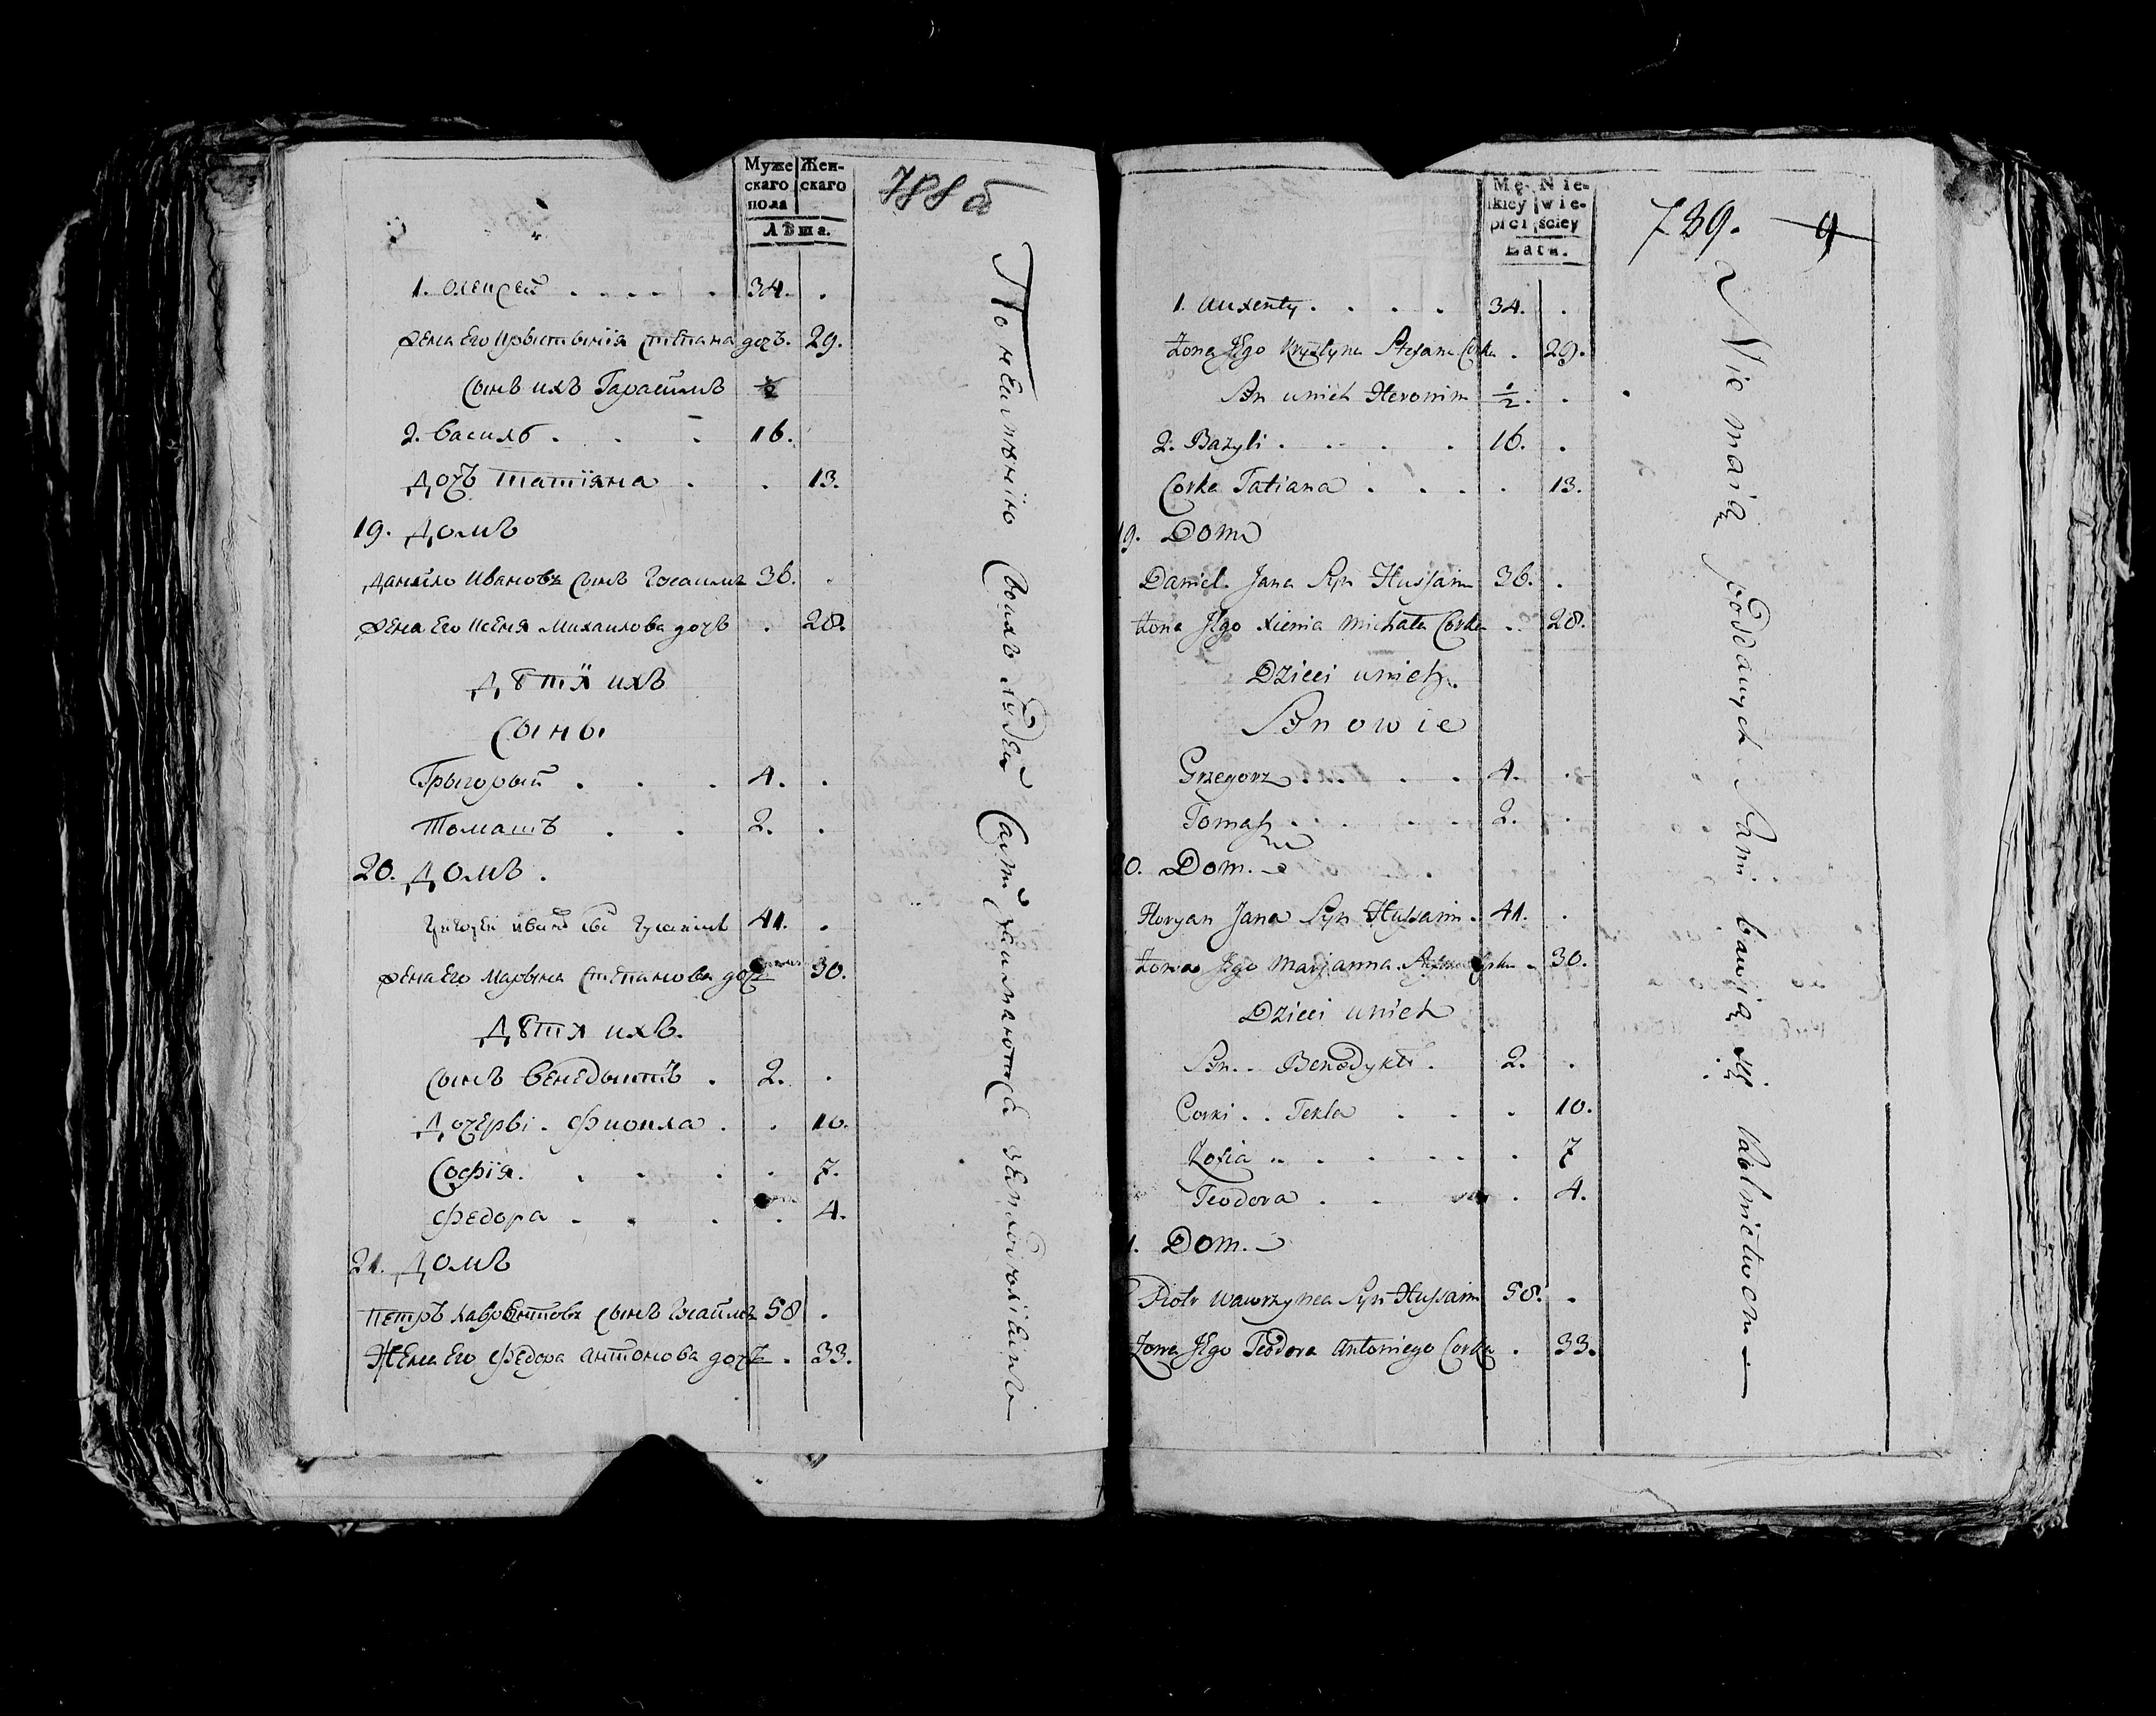 Муже
скаго
пола
Жен-
скаго
Лѣта.
788 б
1. Олексей . . . . . 34. .
жена Его Крыстыніія Степана дочъ. 29.
Сынъ ихъ Гарасимъ ½
2. Василь . . . 16.
Дочъ Татіяна . . 13.
19. Домъ
Данило Ивановъ Сынъ Гусаимъ 36. .
жена Его Ксеня Михаилова дочъ . 28.
Дѣтя ихъ
Сыны
Грыгорый . . . 4. .
Томашъ . . 2. .
20. Домъ .
Иванъ Гусаимъ 41. .
жена Его Марына Степанова дочъ 30.
Дѣтя ихъ.
Сынъ Бенедыктъ . 2. .
Дочерьі . Фиокла . . 10.
Софія. . . . . 7.
Федора . . . . 4.
21. Домъ
Петръ Лаврентовъ Сынъ Гусаимъ 58 .
Жена Его Федора Антонова дочъ . 33.
По неимѣнію Своихъ людей Сами занимаются
Mę-
skiey
płci
Nie-
wie-
ściey
Lata.
789. 9
1. Auxenty . . . . 34. .
Żona Jego Krystyna Stefana Corka . 29.
Syn unich Heronim ½. .
2. Bazyli . . . . . 16. .
Corka Tatiana . . . . . 13.
19. Dom
Daniel Jana Syn Hussaim 36. .
Żona Jego Xienia Michała Corka . . 28.
Dzieci unich.
Synowie
Grzegorz . . . . . 4. .
Tomasz . . . . . . 2. .
20. Dom.
Floryan Jana Syn Hussaim . 41. .
Żona Jego Marjanna Corka . 30.
Dzieci unich
Syn . . Benedykt . 2. .
Corki . . Tekla . . . 10.
Zofia . . . . . . . 7
Teodora . . . 4.
21. Dom.
Piotr Wawrzynca Syn Hussaim 58. .
Żona Jego Teodora Antoniego Corka . 33.
Nie maią poddanych Sami bawią się rolnictwem